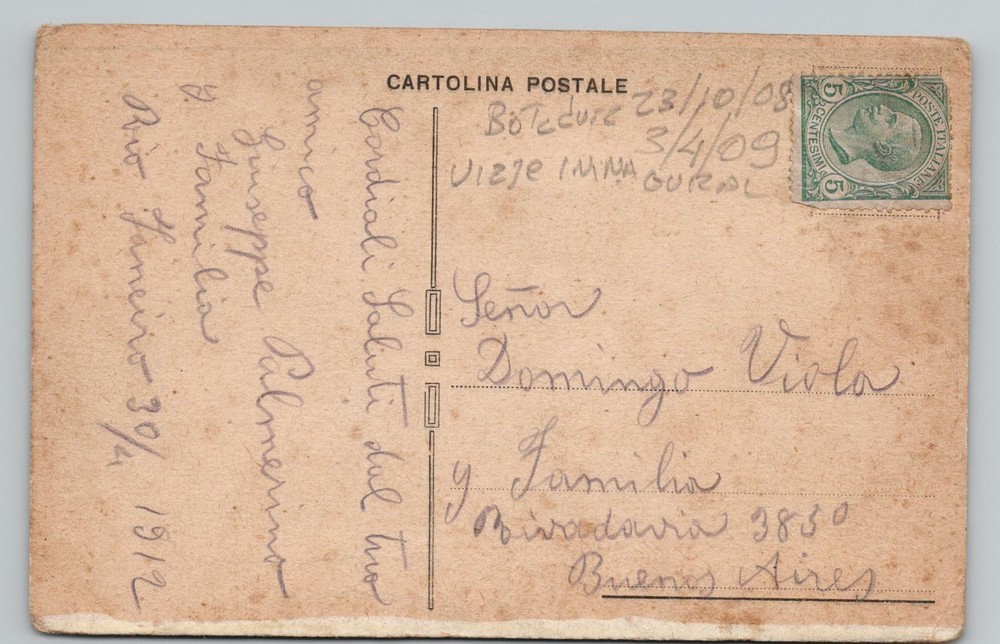 CARTOLINA POSTALE
23/10/08
3/4/09
POSTE ITALIANE
CENTESIMI
5 5
Cordiali Saluti dal tuo
amico
Giuseppe Palmerino
y Familia
Rio Janeiro 30/4 1912
Señor
Domingo Viola
y Familia
Rivadavia 3850
Buenos Aires